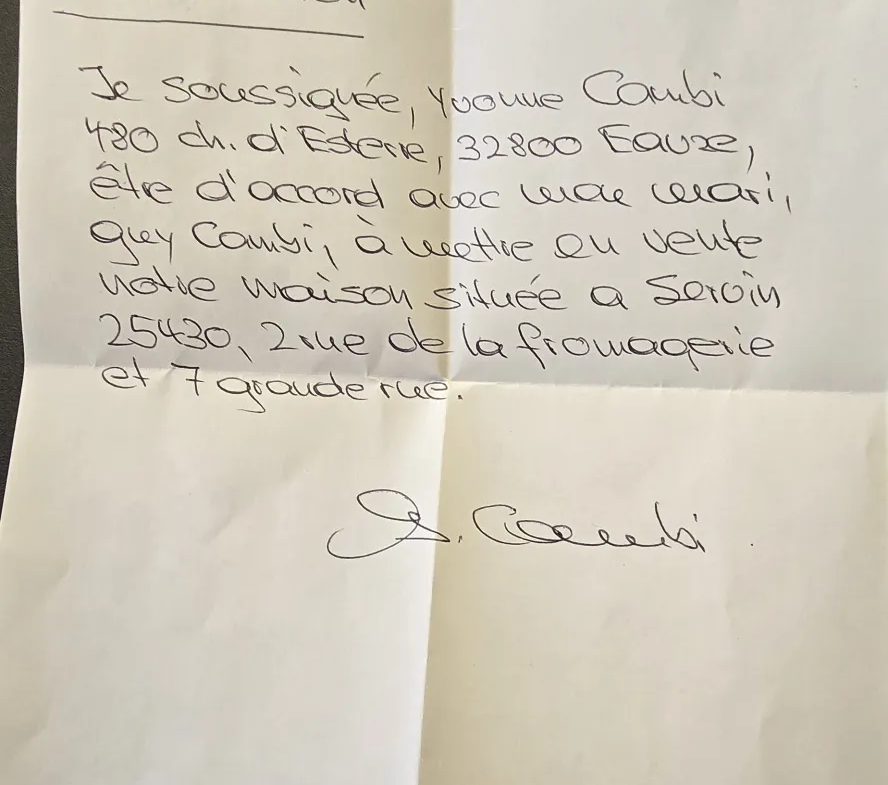 Je soussignée, Yvonne Combi
480 ch. d'Esterre, 32800 Eauze,
être d'accord avec mon mari,
guy Combi, à mettre en vente
notre maison située a Servin
25430, 2 rue de la fromagerie
et 7 grande rue.
Combi